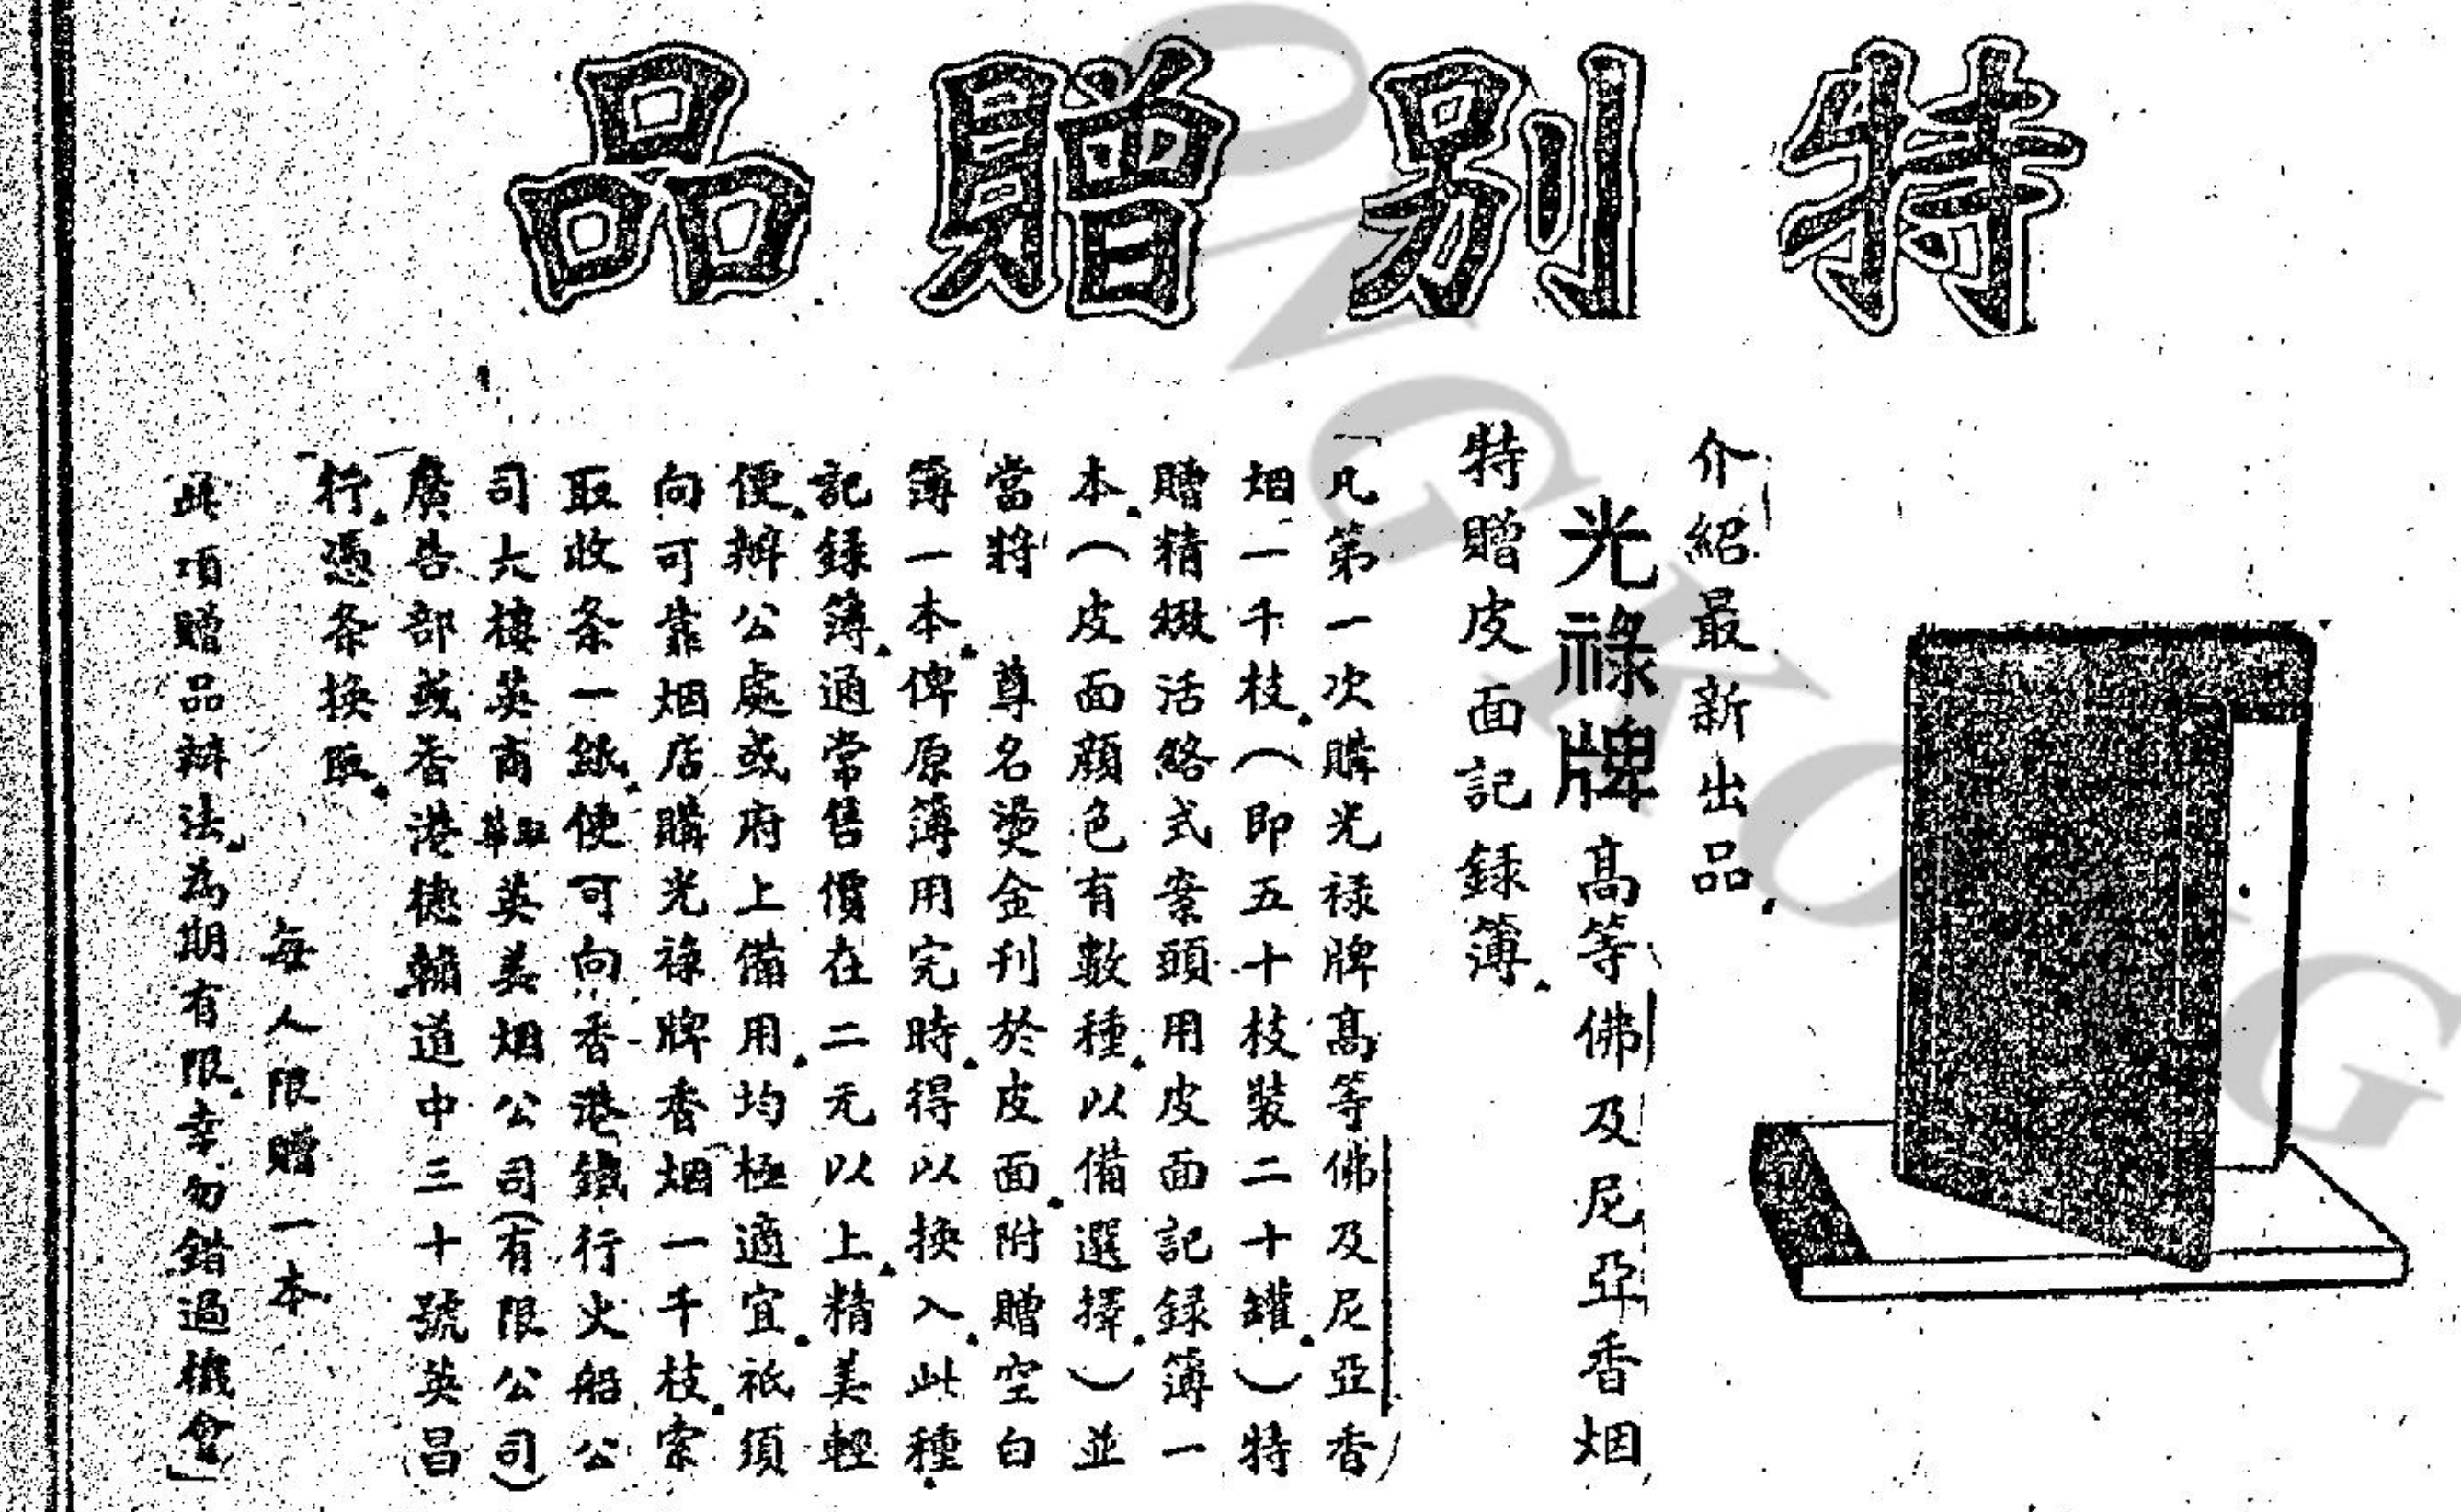 特別贈品
介紹最新出品
光祿牌高等佛及尼亞香烟
特贈皮面記錄簿
「凡第一次購光祿牌高等佛及尼亞香
烟一千枝（即五十枝裝二十罐）特
贈精緻活絡式案頭用皮面記錄簿一
本（皮面顏色有數種以備選擇）並
當將　尊名燙金刊於皮面附贈空白
簿一本俾原簿用完時得以換入此種
記錄簿通常售價在二元以上精美輕
便辦公處或府上備用均極適宜祇須
向可靠烟店購光祿牌香烟一千枝索
取收条一紙便可向香港鐵行火船公
司大樓英商駐華英美烟公司（有限公司）
廣告部或香港德輔道中三十號英昌
行憑条換取
每人限贈一本
此項贈品辦法為期有限幸勿錯過機會」